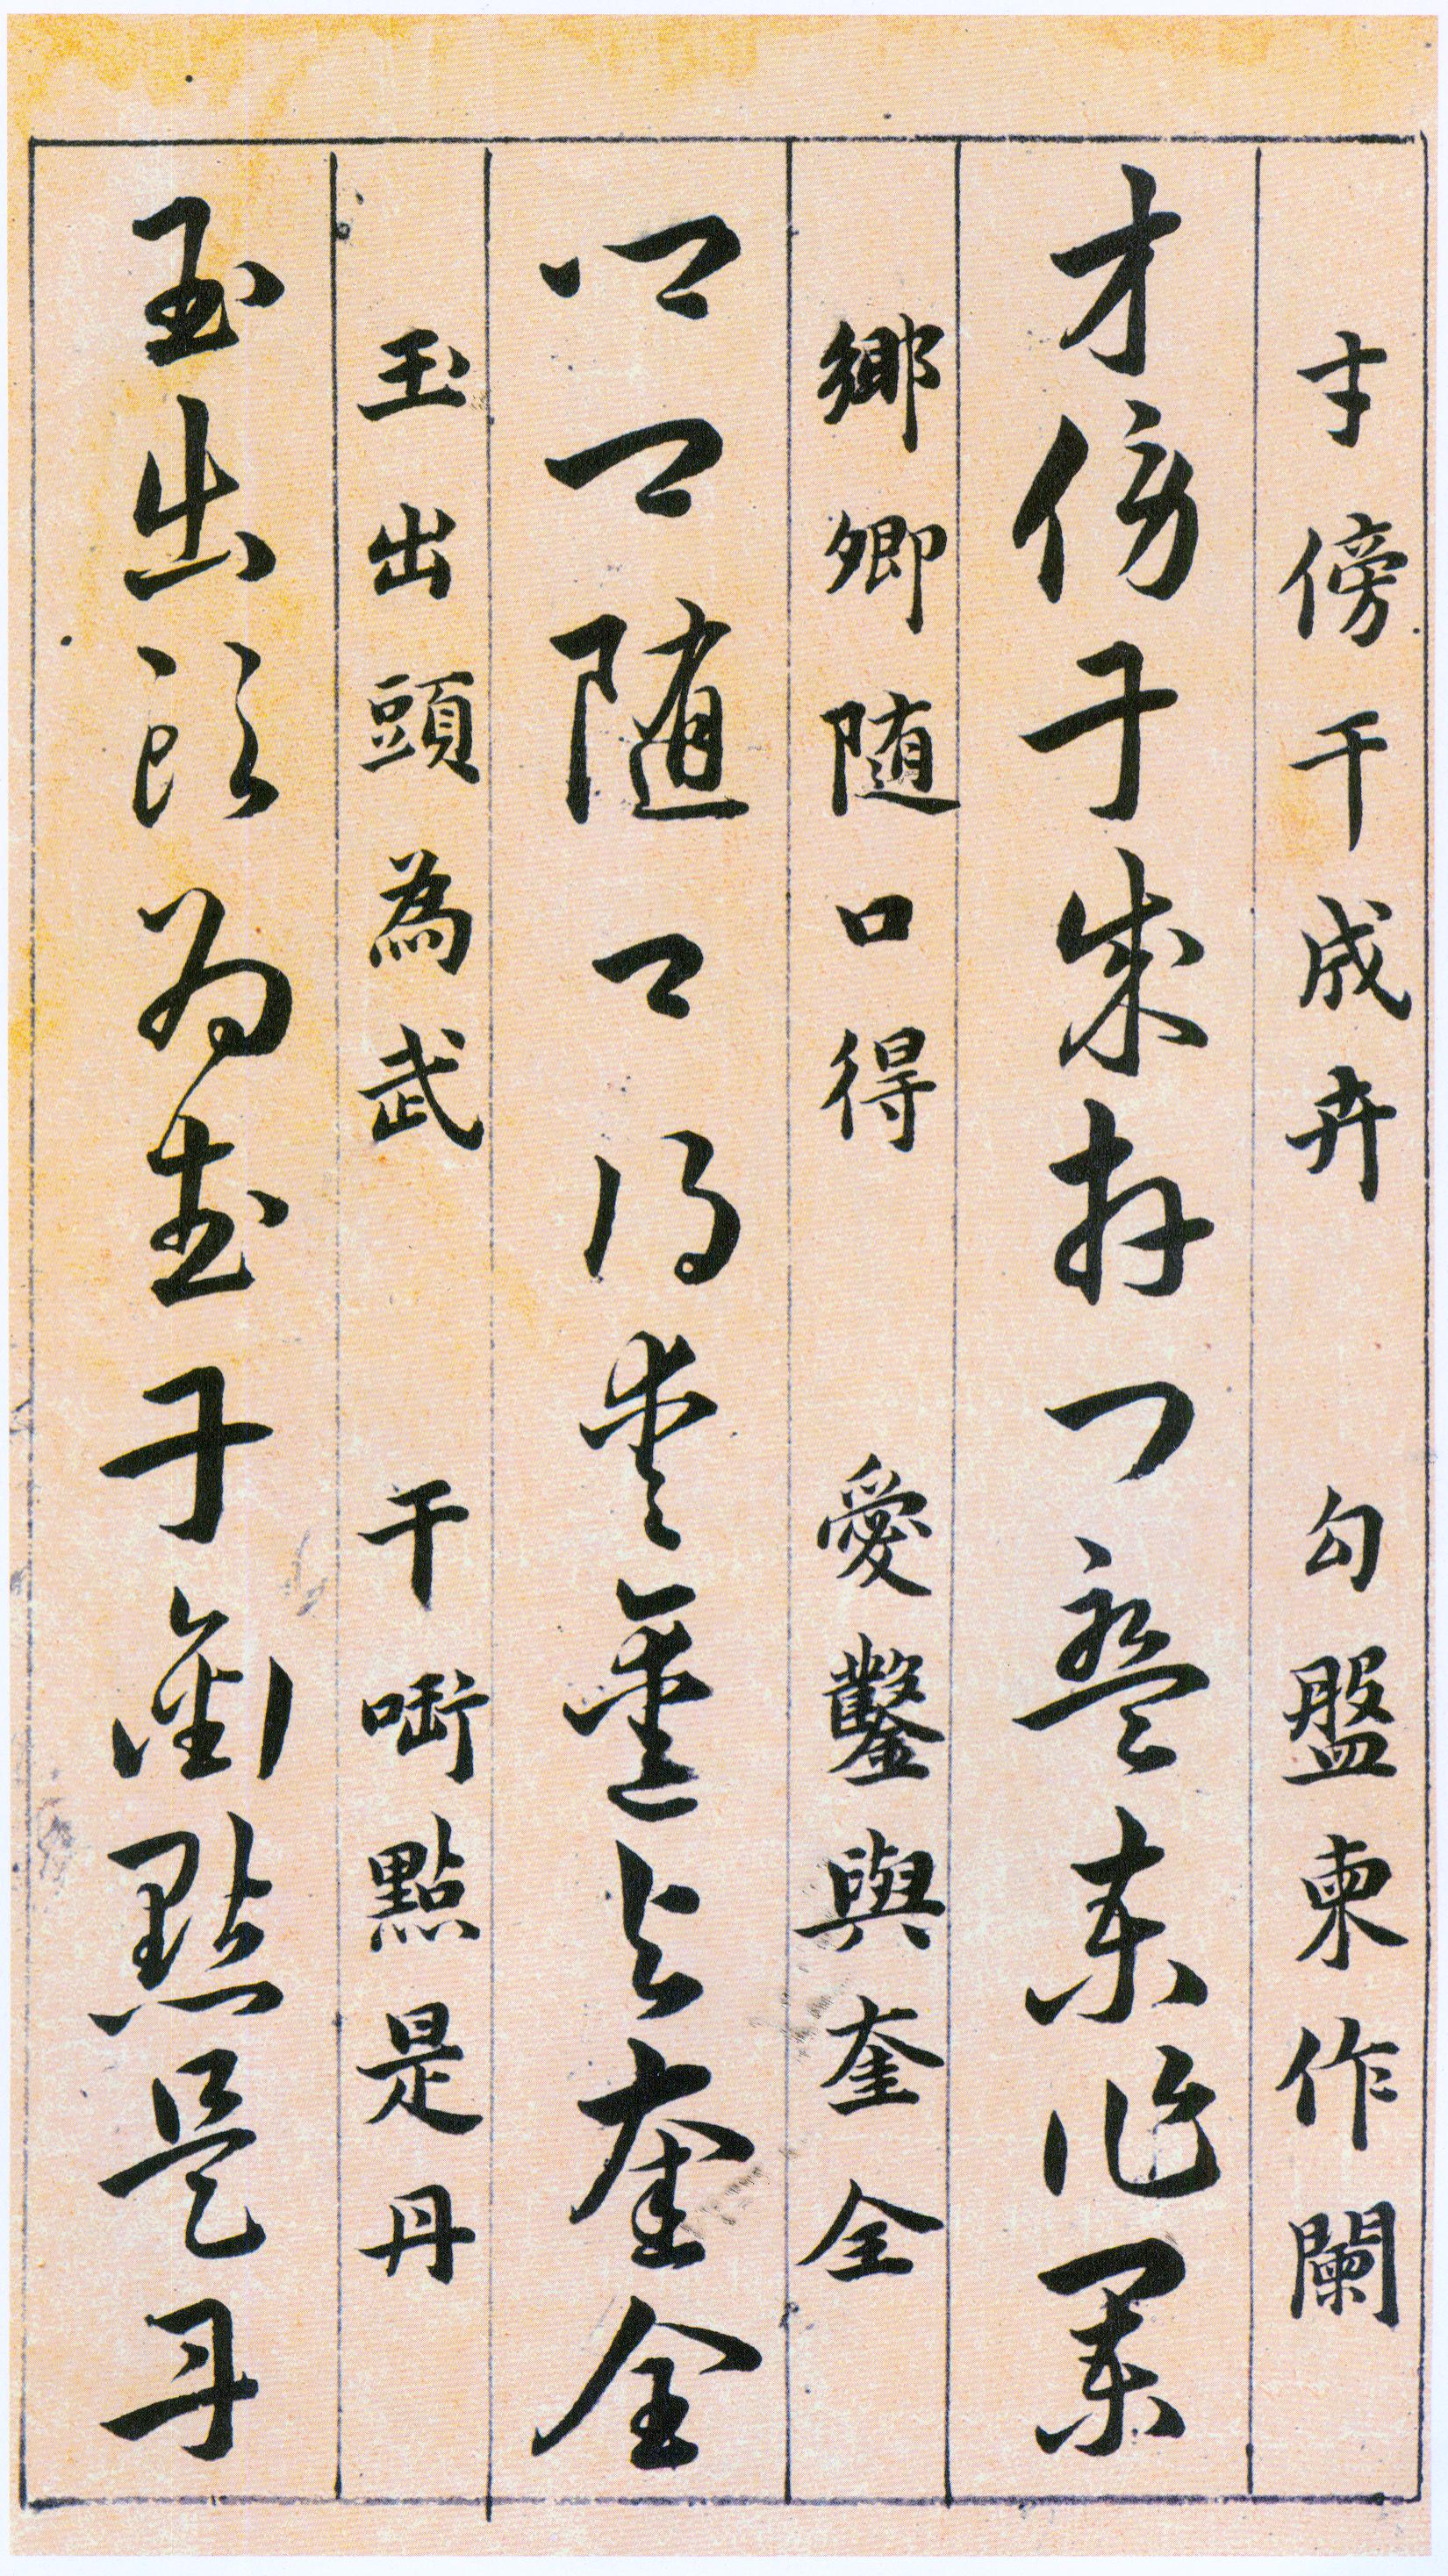 扌傍干成卉 勾盤柬作闌
才傍干成卉勾盤柬作闌
鄉卿随口得 愛鑿與奎全
鄉卿随口得愛鑿與奎全
玉出頭為武 干啣點是丹
玉出頭為武干銜點是丹